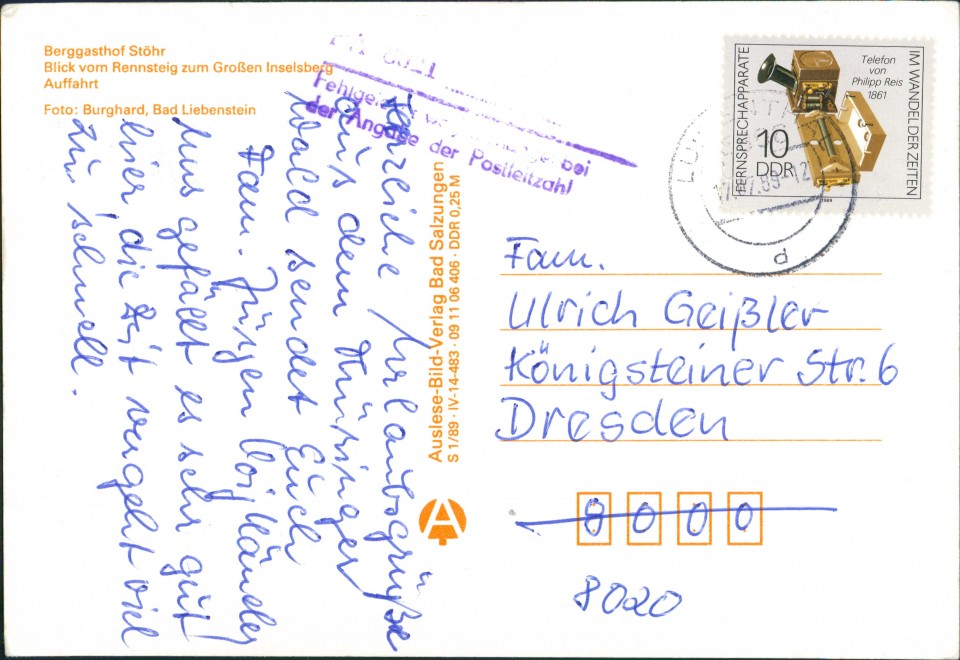 Berggasthof Stöhr
Blick vom Rennsteig zum Großen Inselsberg
Auffahrt
Foto: Burghard, Bad Liebenstein
Herzliche Urlaubsgrüße
aus dem Thüringer
Wald sendet Euch
Fam. Jürgen
Uns gefällt es sehr gut
hier die Zeit vergeht viel
zu schnell.
Auslese-Bild-Verlag Bad Salzungen
S 1/89 · IV-14-483 · 09 11 06 406 · DDR 0,25 M
bei
der Angabe der Postleitzahl
FERNSPRECHAPPARATE
IM WANDEL DER ZEITEN
Telefon
von
Philipp Reis
1861
10
DDR
1989
d
Fam.
Ulrich Geißler
Königsteiner Str. 6
Dresden
8000
8020